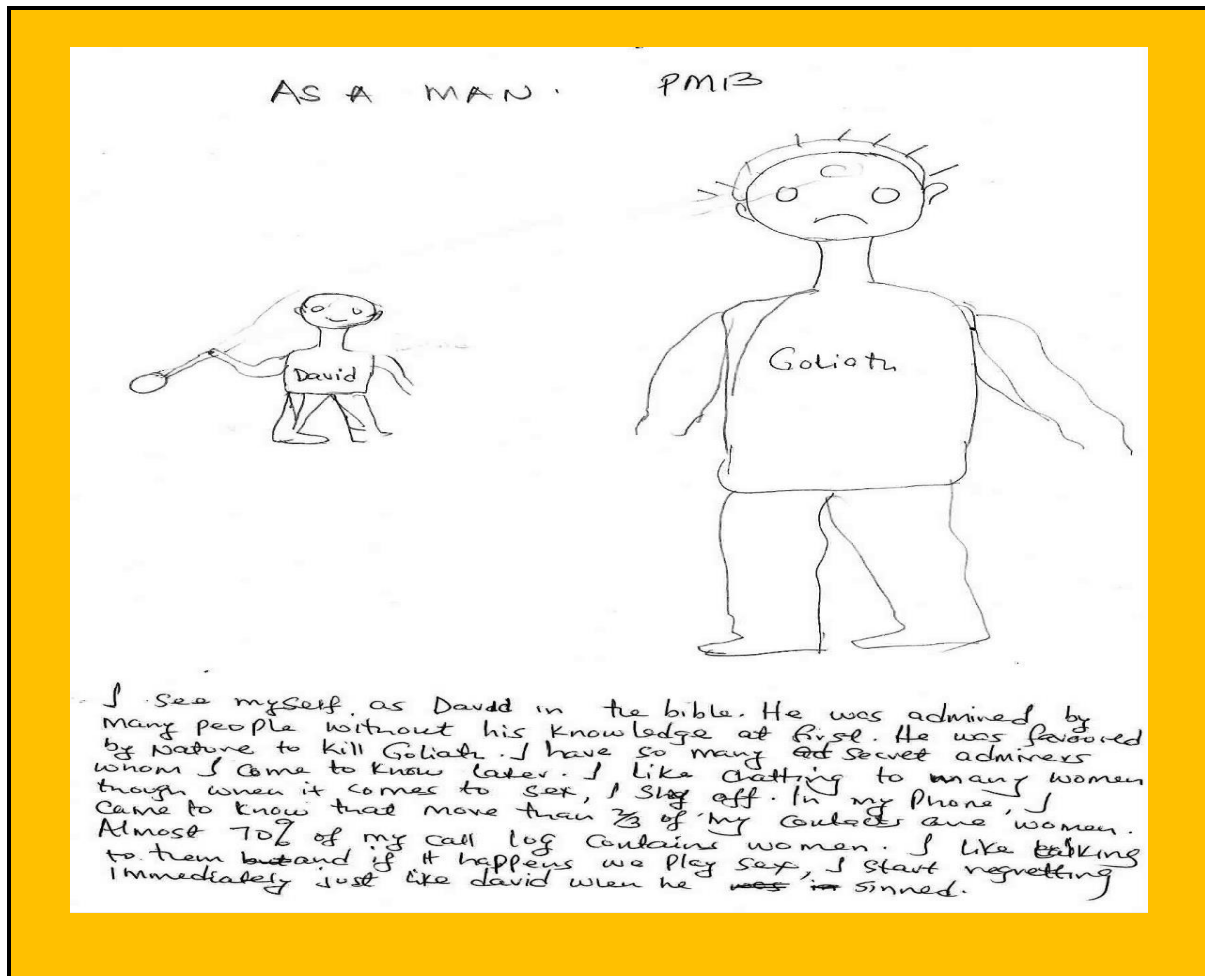 AS A MAN. PM13
David
Goliath
I see myself as David in the bible. He was admired by
many people without his knowledge at first. He was favoured
by Nature to kill Goliath. I have so many secret admirers
whom I come to know later. I like chatting to many women
though when it comes to sex, I off. In my Phone, I
came to know that more than 2/3 of my contacts are women.
Almost 70% of my call log contains women. I like talking
to them and if it happens we play sex, I start regretting
immediately just like david when he sinned.